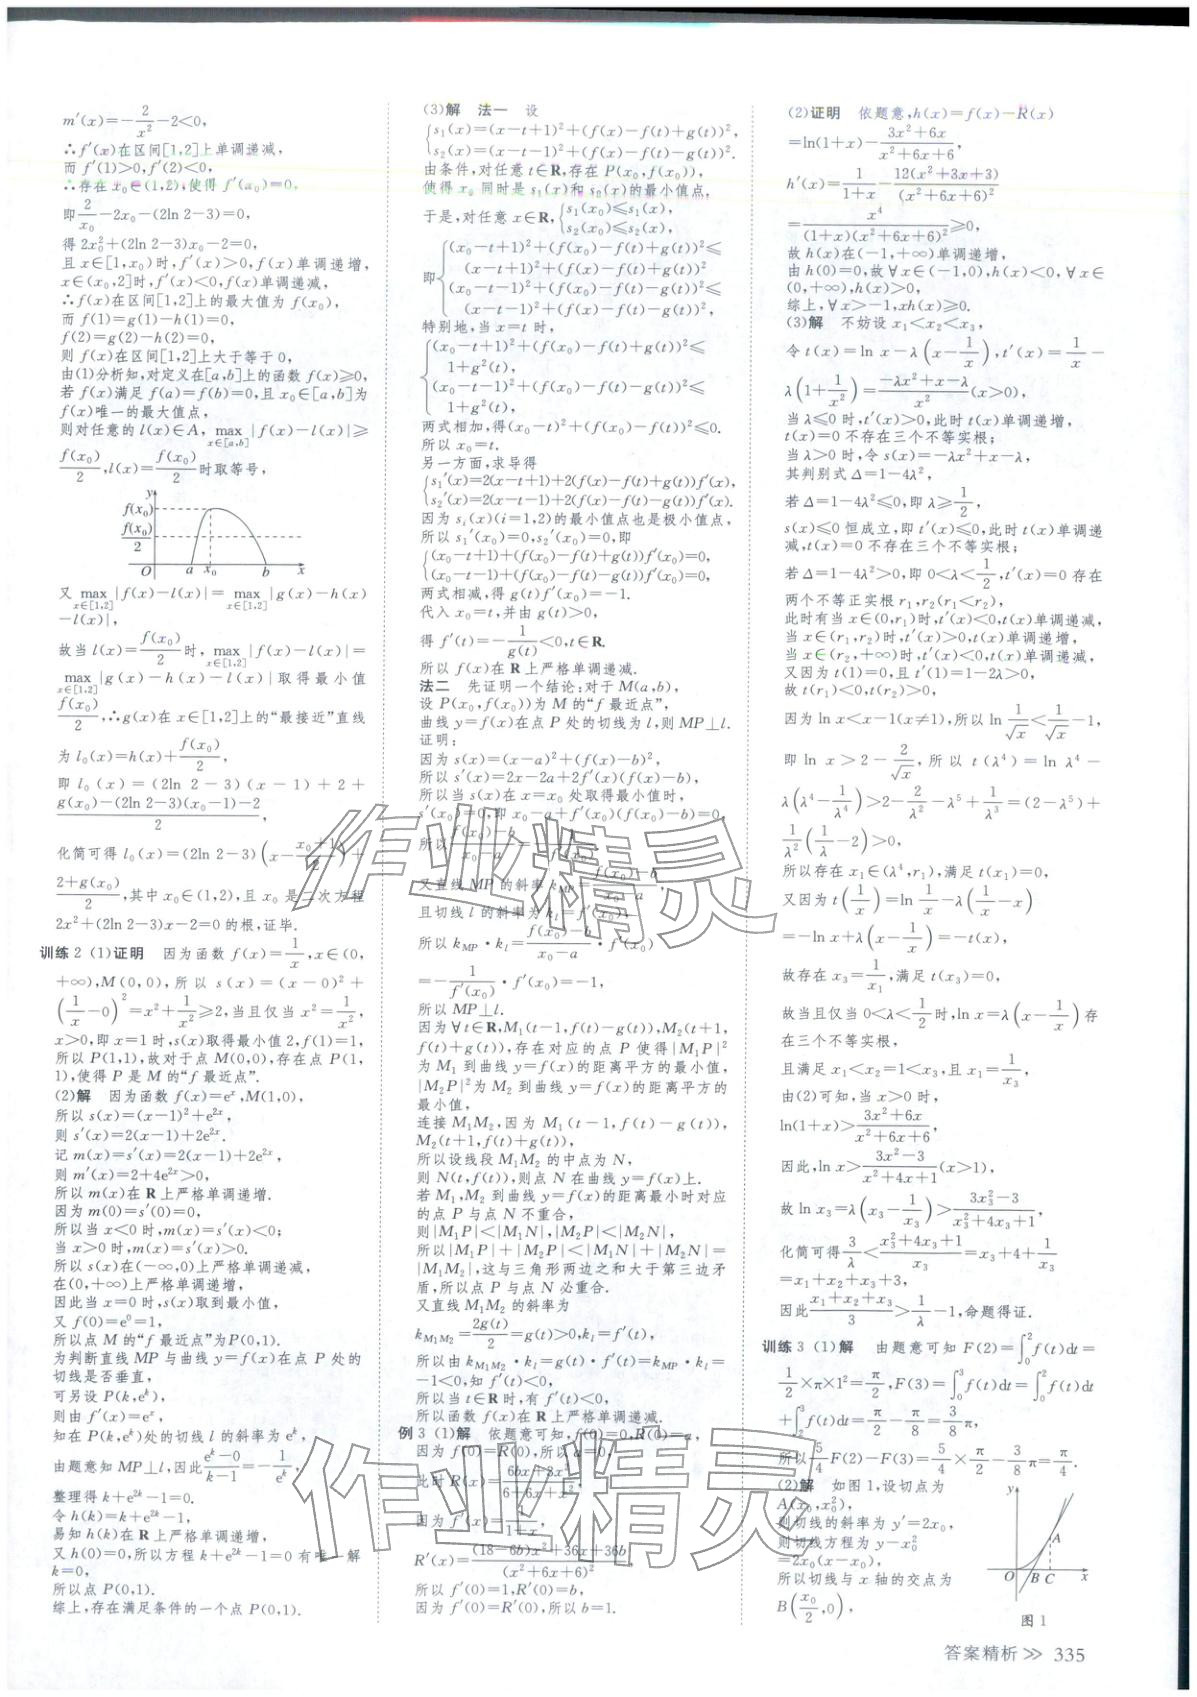 m′(x)=−2/x²−2<0,
∴f′(x)在区间[1,2]上单调递减,
而 f′(1)>0,f′(2)<0,
∴存在 x₀∈(1,2),使得 f′(x₀)=0,
即2/x₀−2x₀−(2ln 2−3)=0,
得 2x₀²+(2ln 2−3)x₀−2=0,
且 x∈[1,x₀)时,f′(x)>0,f(x)单调递增,
x∈(x₀,2]时,f′(x)<0,f(x)单调递减,
∴f(x)在区间[1,2]上的最大值为 f(x₀),
而 f(1)=g(1)−h(1)=0,
f(2)=g(2)−h(2)=0,
则 f(x)在区间[1,2]上大于等于 0,
由(1)分析知,对定义在[a,b]上的函数 f(x)≥0,
若 f(x)满足 f(a)=f(b)=0,且 x₀∈[a,b]为
f(x)唯一的最大值点,
则对任意的 l(x)∈A, max x∈[a,b] |f(x)−l(x)|≥
f(x₀)/2,l(x)=f(x₀)/2时取等号,
y
f(x₀)
f(x₀)/2
O a x₀ b x
又 max x∈[1,2] |f(x)−l(x)|= max x∈[1,2] |g(x)−h(x)
−l(x)|,
故当 l(x)=f(x₀)/2时, max x∈[1,2] |f(x)−l(x)|=
max x∈[1,2] |g(x)−h(x)−l(x)|取得最小值
f(x₀)/2,∴g(x)在 x∈[1,2]上的“最接近”直线
为 l₀(x)=h(x)+f(x₀)/2,
即 l₀(x)=(2ln 2−3)(x−1)+2+
g(x₀)−(2ln 2−3)(x₀−1)−2/2,
化简可得 l₀(x)=(2ln 2−3)(x−x₀+1/2)+
2+g(x₀)/2,其中 x₀∈(1,2),且 x₀ 是二次方程
2x²+(2ln 2−3)x−2=0 的根,证毕.
训练 2 (1)证明 因为函数 f(x)=1/x,x∈(0,
+∞),M(0,0),所以 s(x)=(x−0)²+
(1/x−0)²=x²+1/x²≥2,当且仅当 x²=1/x²,
x>0,即 x=1 时,s(x)取得最小值 2,f(1)=1,
所以 P(1,1),故对于点 M(0,0),存在点 P(1,
1),使得 P 是 M 的“f 最近点”.
(2)解 因为函数 f(x)=eˣ,M(1,0),
所以 s(x)=(x−1)²+e²ˣ,
则 s′(x)=2(x−1)+2e²ˣ.
记 m(x)=s′(x)=2(x−1)+2e²ˣ,
则 m′(x)=2+4e²ˣ>0,
所以 m(x)在 R 上严格单调递增.
因为 m(0)=s′(0)=0,
所以当 x<0 时,m(x)=s′(x)<0;
当 x>0 时,m(x)=s′(x)>0.
所以 s(x)在(−∞,0)上严格单调递减,
在(0,+∞)上严格单调递增,
因此当 x=0 时,s(x)取到最小值,
又 f(0)=e⁰=1,
所以点 M 的“f 最近点”为P(0,1).
为判断直线 MP 与曲线 y=f(x)在点 P 处的
切线是否垂直,
可另设 P(k,eᵏ),
则由 f′(x)=eˣ,
知在 P(k,eᵏ)处的切线 l 的斜率为 eᵏ,
由题意知 MP⊥l,因此eᵏ−0/k−1=−1/eᵏ,
整理得 k+e²ᵏ−1=0.
令 h(k)=k+e²ᵏ−1,
易知 h(k)在 R 上严格单调递增,
又 h(0)=0,所以方程 k+e²ᵏ−1=0 有唯一解
k=0,
所以点 P(0,1).
综上,存在满足条件的一个点 P(0,1).
(3)解 法一 设
{s₁(x)=(x−t+1)²+(f(x)−f(t)+g(t))²,
s₂(x)=(x−t−1)²+(f(x)−f(t)−g(t))².
由条件,对任意 t∈R,存在 P(x₀,f(x₀)),
使得 x₀ 同时是 s₁(x)和 s₂(x)的最小值点,
于是,对任意 x∈R,{s₁(x₀)≤s₁(x),
s₂(x₀)≤s₂(x),
即{(x₀−t+1)²+(f(x₀)−f(t)+g(t))²≤
(x−t+1)²+(f(x)−f(t)+g(t))²,
(x₀−t−1)²+(f(x₀)−f(t)−g(t))²≤
(x−t−1)²+(f(x)−f(t)−g(t))²,
特别地,当 x=t 时,
{(x₀−t+1)²+(f(x₀)−f(t)+g(t))²≤
1+g²(t),
(x₀−t−1)²+(f(x₀)−f(t)−g(t))²≤
1+g²(t),
两式相加,得(x₀−t)²+(f(x₀)−f(t))²≤0.
所以 x₀=t.
另一方面,求导得
{s₁′(x)=2(x−t+1)+2(f(x)−f(t)+g(t))f′(x),
s₂′(x)=2(x−t−1)+2(f(x)−f(t)−g(t))f′(x).
因为 sᵢ(x)(i=1,2)的最小值点也是极小值点,
所以 s₁′(x₀)=0,s₂′(x₀)=0,即
{(x₀−t+1)+(f(x₀)−f(t)+g(t))f′(x₀)=0,
(x₀−t−1)+(f(x₀)−f(t)−g(t))f′(x₀)=0,
两式相减,得 g(t)f′(x₀)=−1.
代入 x₀=t,并由 g(t)>0,
得 f′(t)=−1/g(t)<0,t∈R.
所以 f(x)在 R 上严格单调递减.
法二 先证明一个结论:对于 M(a,b),
设 P(x₀,f(x₀))为 M 的“f 最近点”,
曲线 y=f(x)在点 P 处的切线为 l,则 MP⊥l.
证明:
因为 s(x)=(x−a)²+(f(x)−b)²,
所以 s′(x)=2x−2a+2f′(x)(f(x)−b),
所以当 s(x)在 x=x₀ 处取得最小值时,
s′(x₀)=0,即 x₀−a+f′(x₀)(f(x₀)−b)=0,
所以f(x₀)−b/x₀−a=−1/f′(x₀),
又直线 MP 的斜率 kMP=f(x₀)−b/x₀−a,
且切线 l 的斜率为 kₗ=f′(x₀),
所以 kMP·kₗ=f(x₀)−b/x₀−a·f′(x₀)
=−1/f′(x₀)·f′(x₀)=−1,
所以 MP⊥l.
因为∀t∈R,M₁(t−1,f(t)−g(t)),M₂(t+1,
f(t)+g(t)),存在对应的点 P 使得|M₁P|²
为 M₁ 到曲线 y=f(x)的距离平方的最小值,
|M₂P|²为 M₂ 到曲线 y=f(x)的距离平方的
最小值,
连接 M₁M₂,因为 M₁(t−1,f(t)−g(t)),
M₂(t+1,f(t)+g(t)),
所以设线段 M₁M₂ 的中点为 N,
则 N(t,f(t)),则点 N 在曲线 y=f(x)上.
若 M₁,M₂ 到曲线 y=f(x)的距离最小时对应
的点 P 与点 N 不重合,
则|M₁P|<|M₁N|,|M₂P|<|M₂N|,
所以|M₁P|+|M₂P|<|M₁N|+|M₂N|=
|M₁M₂|,这与三角形两边之和大于第三边矛
盾,所以点 P 与点 N 必重合.
又直线 M₁M₂ 的斜率为
kM₁M₂=2g(t)/2=g(t)>0,kₗ=f′(t),
所以由 kM₁M₂·kₗ=g(t)·f′(t)=kMP·kₗ=
−1<0,知 f′(t)<0,
所以当 t∈R 时,有 f′(t)<0,
所以函数 f(x)在 R 上严格单调递减.
例 3 (1)解 依题意可知,f(0)=0,R(0)=a,
因为 f(0)=R(0),所以 a=0,
此时 R(x)=6bx+3x²/6+6x+x²,
因为 f′(x)=1/1+x,
R′(x)=(18−6b)x²+36x+36b/(x²+6x+6)²,
所以 f′(0)=1,R′(0)=b,
因为 f′(0)=R′(0),所以 b=1.
(2)证明 依题意,h(x)=f(x)−R(x)
=ln(1+x)−3x²+6x/x²+6x+6,
h′(x)=1/1+x−12(x²+3x+3)/(x²+6x+6)²
=x⁴/(1+x)(x²+6x+6)²≥0,
故 h(x)在(−1,+∞)单调递增,
由 h(0)=0,故∀x∈(−1,0),h(x)<0,∀x∈
(0,+∞),h(x)>0,
综上,∀x>−1,xh(x)≥0.
(3)解 不妨设 x₁<x₂<x₃,
令 t(x)=ln x−λ(x−1/x),t′(x)=1/x−
λ(1+1/x²)=−λx²+x−λ/x²(x>0),
当 λ≤0 时,t′(x)>0,此时 t(x)单调递增,
t(x)=0 不存在三个不等实根;
当 λ>0 时,令 s(x)=−λx²+x−λ,
其判别式 Δ=1−4λ²,
若 Δ=1−4λ²≤0,即 λ≥1/2,
s(x)≤0 恒成立,即 t′(x)≤0,此时 t(x)单调递
减,t(x)=0 不存在三个不等实根;
若 Δ=1−4λ²>0,即 0<λ<1/2,t′(x)=0 存在
两个不等正实根 r₁,r₂(r₁<r₂),
此时有当 x∈(0,r₁)时,t′(x)<0,t(x)单调递减,
当 x∈(r₁,r₂)时,t′(x)>0,t(x)单调递增,
当 x∈(r₂,+∞)时,t′(x)<0,t(x)单调递减,
又因为 t(1)=0,且 t′(1)=1−2λ>0,
故 t(r₁)<0,t(r₂)>0,
因为 ln x<x−1(x≠1),所以 ln 1/√x<1/√x−1,
即 ln x>2−2/√x,所以 t(λ⁴)=ln λ⁴−
λ(λ⁴−1/λ⁴)>2−2/λ²−λ⁵+1/λ³=(2−λ⁵)+
1/λ²(1/λ−2)>0,
所以存在 x₁∈(λ⁴,r₁),满足 t(x₁)=0,
又因为 t(1/x)=ln 1/x−λ(1/x−x)
=−ln x+λ(x−1/x)=−t(x),
故存在 x₃=1/x₁,满足 t(x₃)=0,
故当且仅当 0<λ<1/2时,ln x=λ(x−1/x)存
在三个不等实根,
且满足 x₁<x₂=1<x₃,且 x₁=1/x₃,
由(2)可知,当 x>0 时,
ln(1+x)>3x²+6x/x²+6x+6,
因此,ln x>3x²−3/x²+4x+1(x>1),
故 ln x₃=λ(x₃−1/x₃)>3x₃²−3/x₃²+4x₃+1,
化简可得3/λ<x₃²+4x₃+1/x₃=x₃+4+1/x₃
=x₁+x₂+x₃+3,
因此x₁+x₂+x₃/3>1/λ−1,命题得证.
训练 3 (1)解 由题意可知 F(2)=∫₀²f(t)dt=
1/2×π×1²=π/2,F(3)=∫₀³f(t)dt=∫₀²f(t)dt
+∫₂³f(t)dt=π/2−π/8=3/8π,
所以5/4F(2)−F(3)=5/4×π/2−3/8π=π/4.
(2)解 如图 1,设切点为
A(x₀,x₀²),
则切线的斜率为 y′=2x₀,
则切线方程为 y−x₀²
=2x₀(x−x₀),
所以切线与 x 轴的交点为
B(x₀/2,0),
y
A
O B C x
图 1
答案精析 >> 335
作业精灵
作业精灵